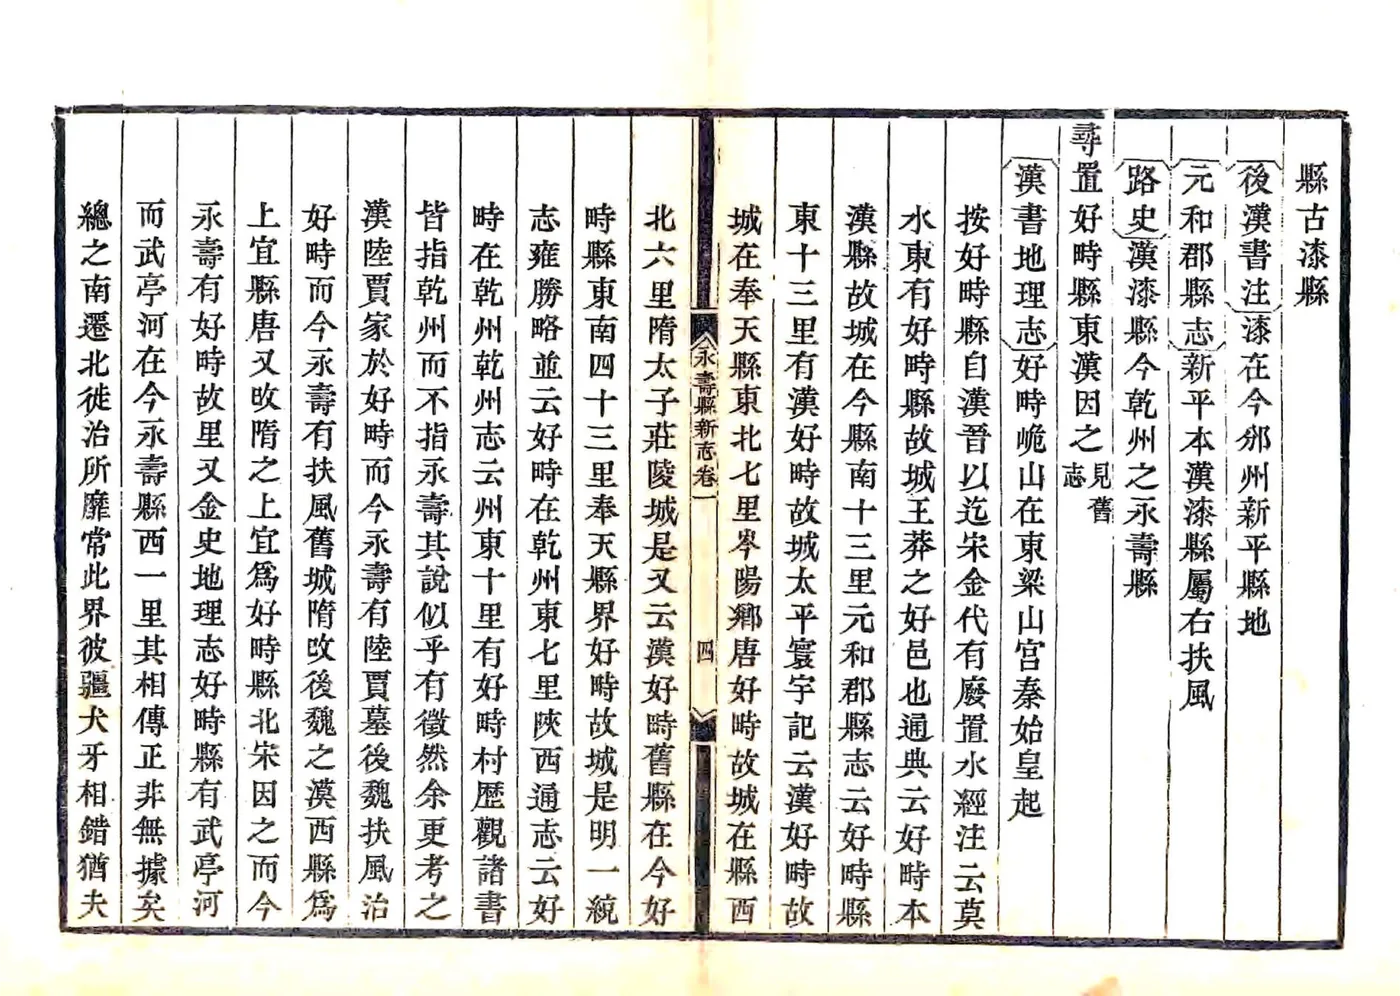 縣古漆縣
後漢書注漆在今邠州新平縣地
元和郡縣志新平本漢漆縣屬右扶風
路史漢漆縣今乾州之永壽縣
尋置好畤縣東漢因之見舊志
漢書地理志好畤峗山在東梁山宮秦始皇起
按好畤縣自漢晉以迄宋金代有廢置水經注云莫
水東有好畤縣故城王莽之好邑也通典云好畤本
漢縣故城在今縣南十三里元和郡縣志云好畤縣
東十三里有漢好畤故城太平寰宇記云漢好畤故
城在奉天縣東北七里岑陽鄉唐好畤故城在縣西
永壽縣新志卷一
四
北六里隋太子莊陵城是又云漢好畤舊縣在今好
畤縣東南四十三里奉天縣界好畤故城是明一統
志雍勝略並云好畤在乾州東七里陝西通志云好
畤在乾州乾州志云州東十里有好畤村歷觀諸書
皆指乾州而不指永壽其說似乎有徵然余更考之
漢陸賈家於好畤而今永壽有陸賈墓後魏扶風治
好畤而今永壽有扶風舊城隋攺後魏之漠西縣爲
上宜縣唐又攺隋之上宜爲好畤縣北宋因之而今
永壽有好畤故里又金史地理志好畤縣有武亭河
而武亭河在今永壽縣西一里其相傳正非無據矣
總之南遷北徙治所靡常此界彼疆犬牙相錯猶夫